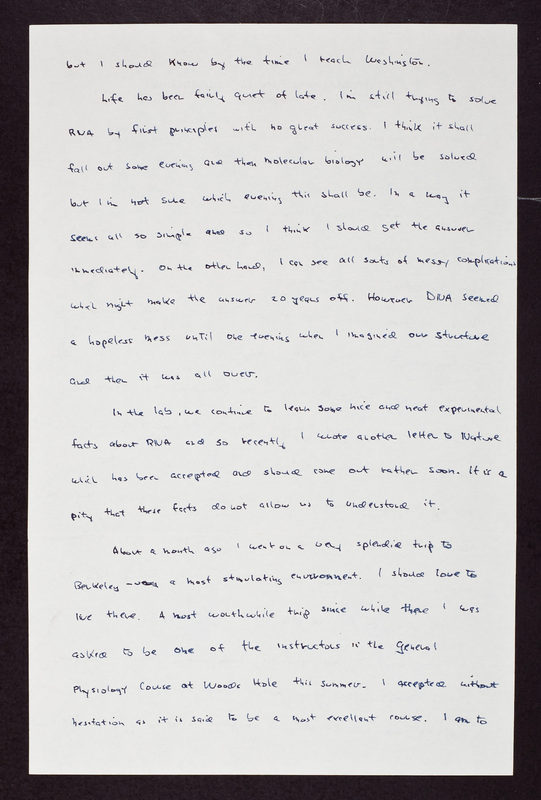 but I should know by the time I reach Washington.
Life has been fairly quiet of late. I'm still trying to solve
RNA by first principles with no great success. I think it shall
fall out some evening and then molecular biology will be solved
but I'm not sure which evening this shall be. In a way it
seems all so simple and so I think I should get the answer
immediately. On the other hand, I can see all sorts of messy complications
which might make the answer 20 years off. However DNA seemed
a hopeless mess until one evening when I imagined our structure
and then it was all over.
In the lab, we continue to learn some nice and neat experimental
facts about RNA and so recently I wrote another letter to Nature
which has been accepted and should come out rather soon. It is a
pity that these facts do not allow us to understand it.
About a month ago I went on a very splendid trip to
Berkeley - a most stimulating environment. I should love to
live there. A most worthwhile trip since while there I was
asked to be one of the instructors in the General
Physiology Course at Woods Hole this summer. I accepted without
hesitation as it is said to be a most excellent course. I am to